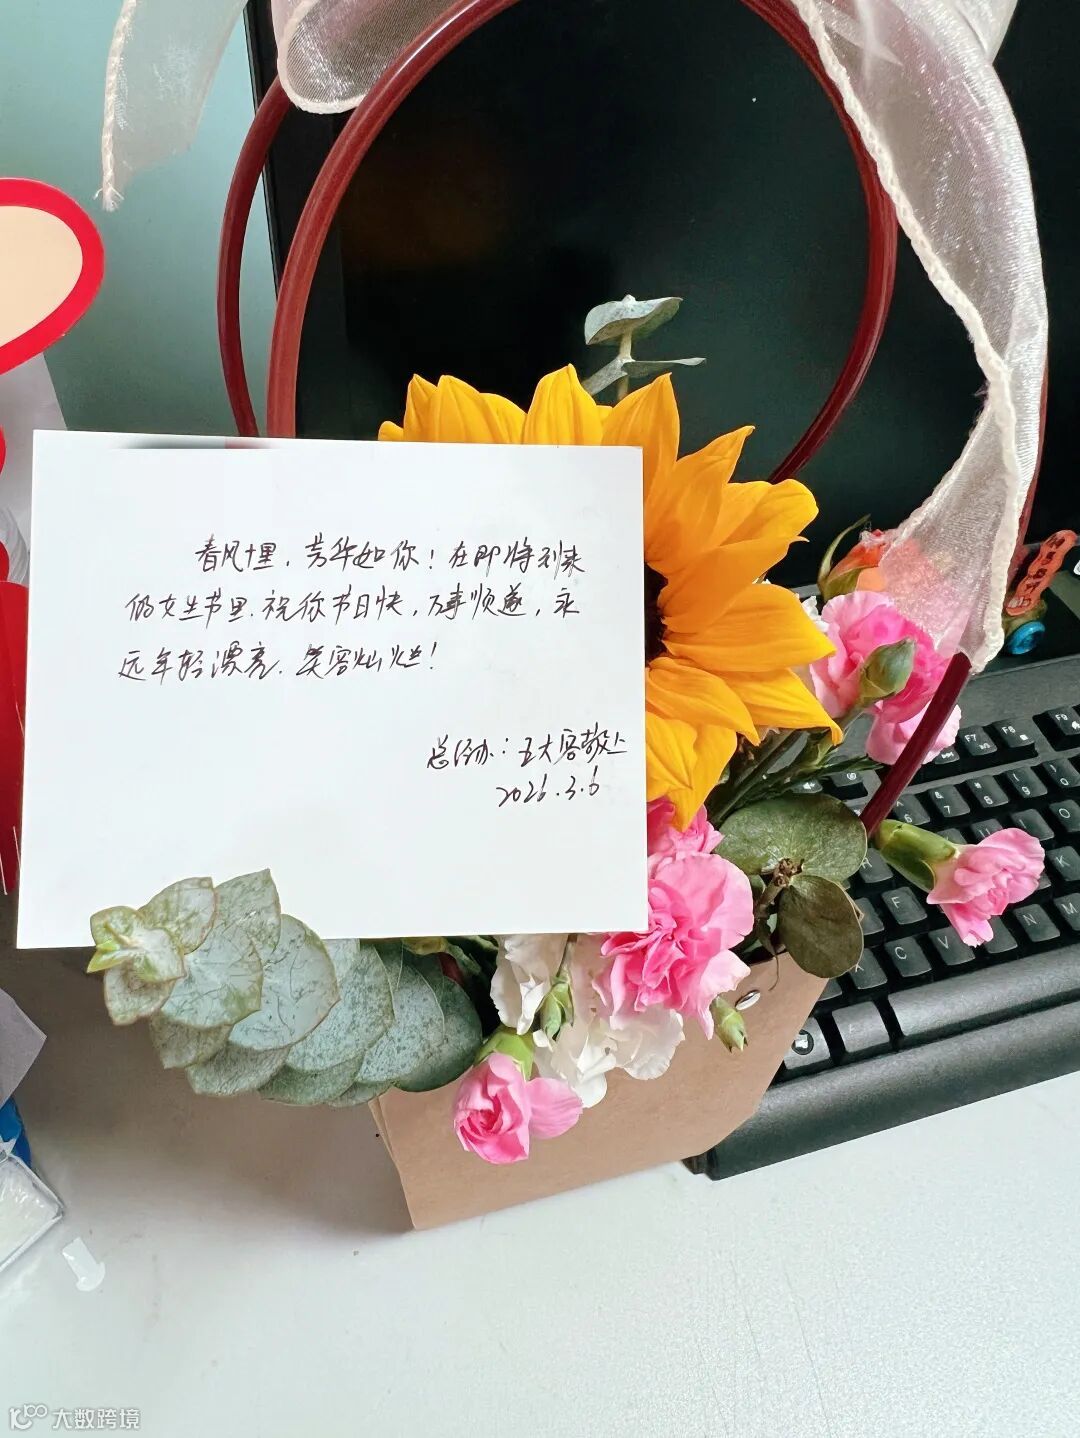 春风十里，芳华如你！在即将到来
的女生节里，祝你节日快，万事顺遂，永
远年轻漂亮，笑容灿烂！
总经办：五大客敬上
2026.3.6
F7
F8
F9
C
V
N
M
大数跨境